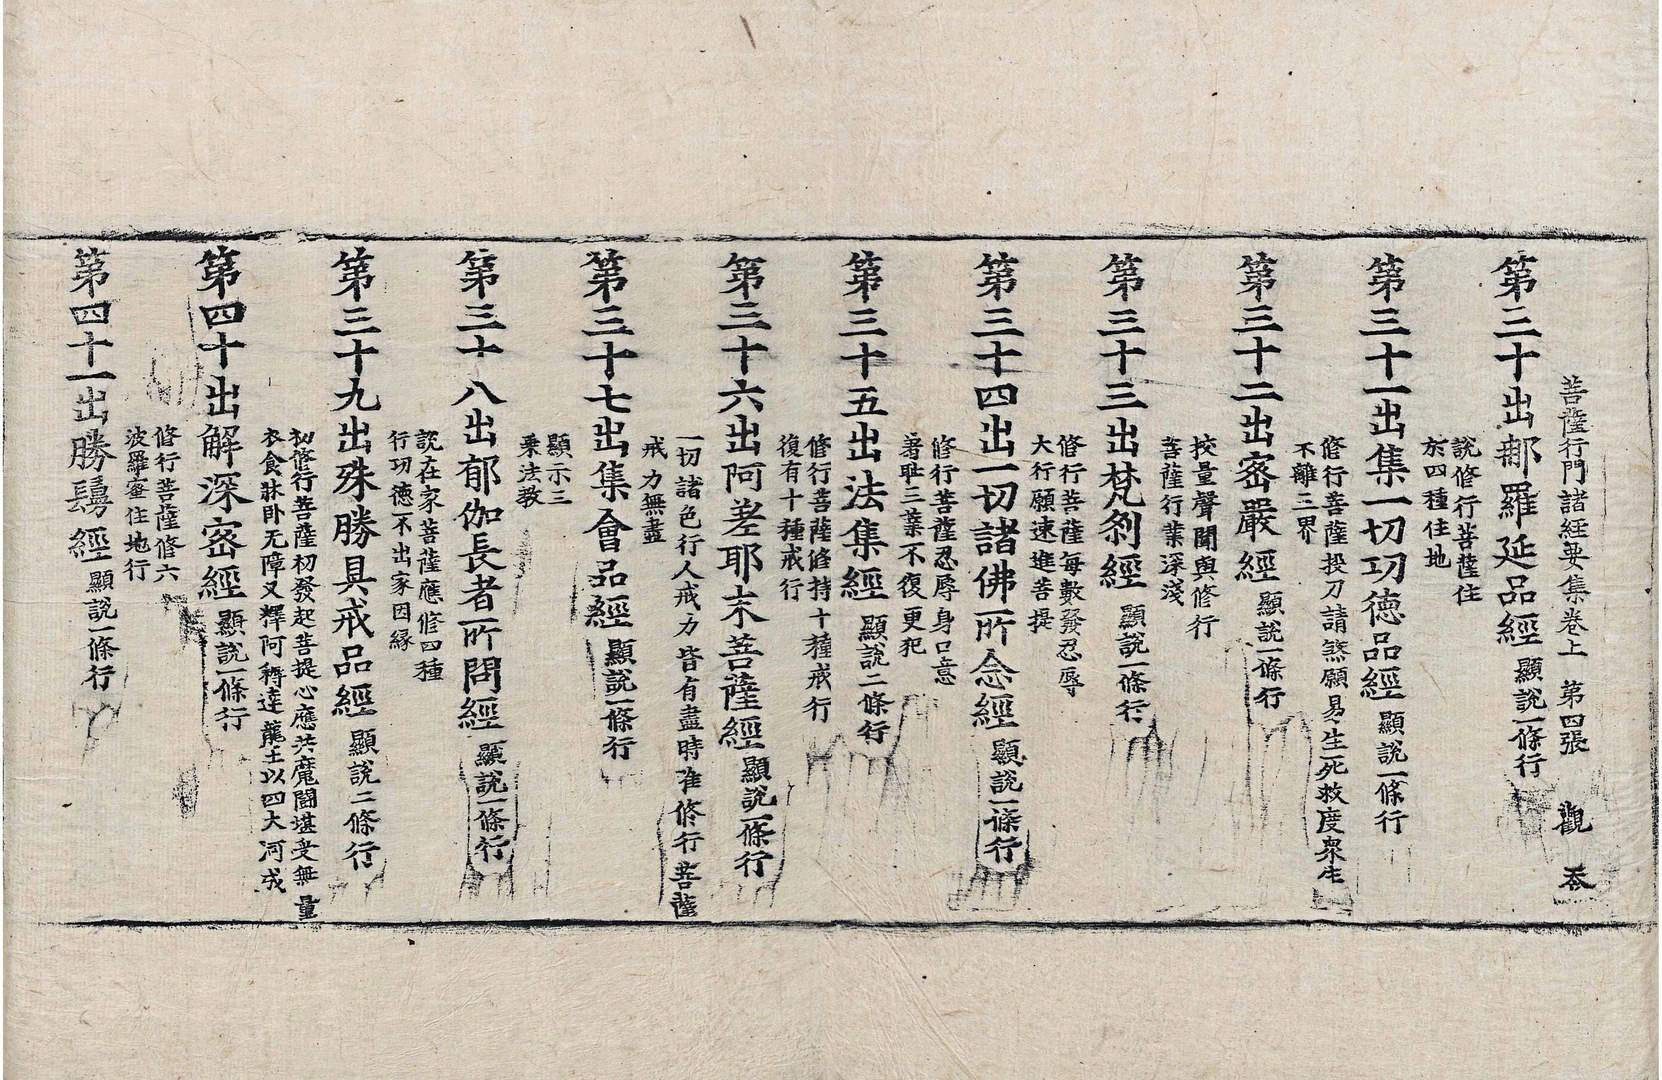 菩薩行門諸經要集卷上 第四張 觀
第三十出那羅延品經 顯說一條行
說修行菩薩住
於四種住地
第三十一出集一切功德品經 顯說一條行
修行菩薩投刀請煞願易生死救度衆生
不離三界
第三十二出密嚴經 顯說一條行
挍量聲聞與修行
菩薩行業深淺
第三十三出梵刹經 顯說一條行
修行菩薩每數發忍辱
大行願速進菩提
第三十四出一切諸佛所念經 顯說一條行
修行菩薩忍辱身口意
著耻三業不復更犯
第三十五出法集經 顯說二條行
修行菩薩修持十種戒行
復有十種戒行
第三十六出阿差耶末菩薩經 顯說一條行
一切諸色行人戒力皆有盡時唯修行菩薩
戒力無盡
第三十七出集會品經 顯說一條行
顯示三
乘法教
第三十八出郁伽長者所問經 顯說一條行
說在家菩薩應修四種
行功德不出家因緣
第三十九出殊勝具戒品經 顯說二條行
初修行菩薩初發起菩提心應共魔鬪堪受無量
衣食牀卧无障又釋阿耨達龍王以四大河成
第四十出解深密經 顯說一條行
修行菩薩修六
波羅蜜住地行
第四十一出勝鬘經 顯說一條行